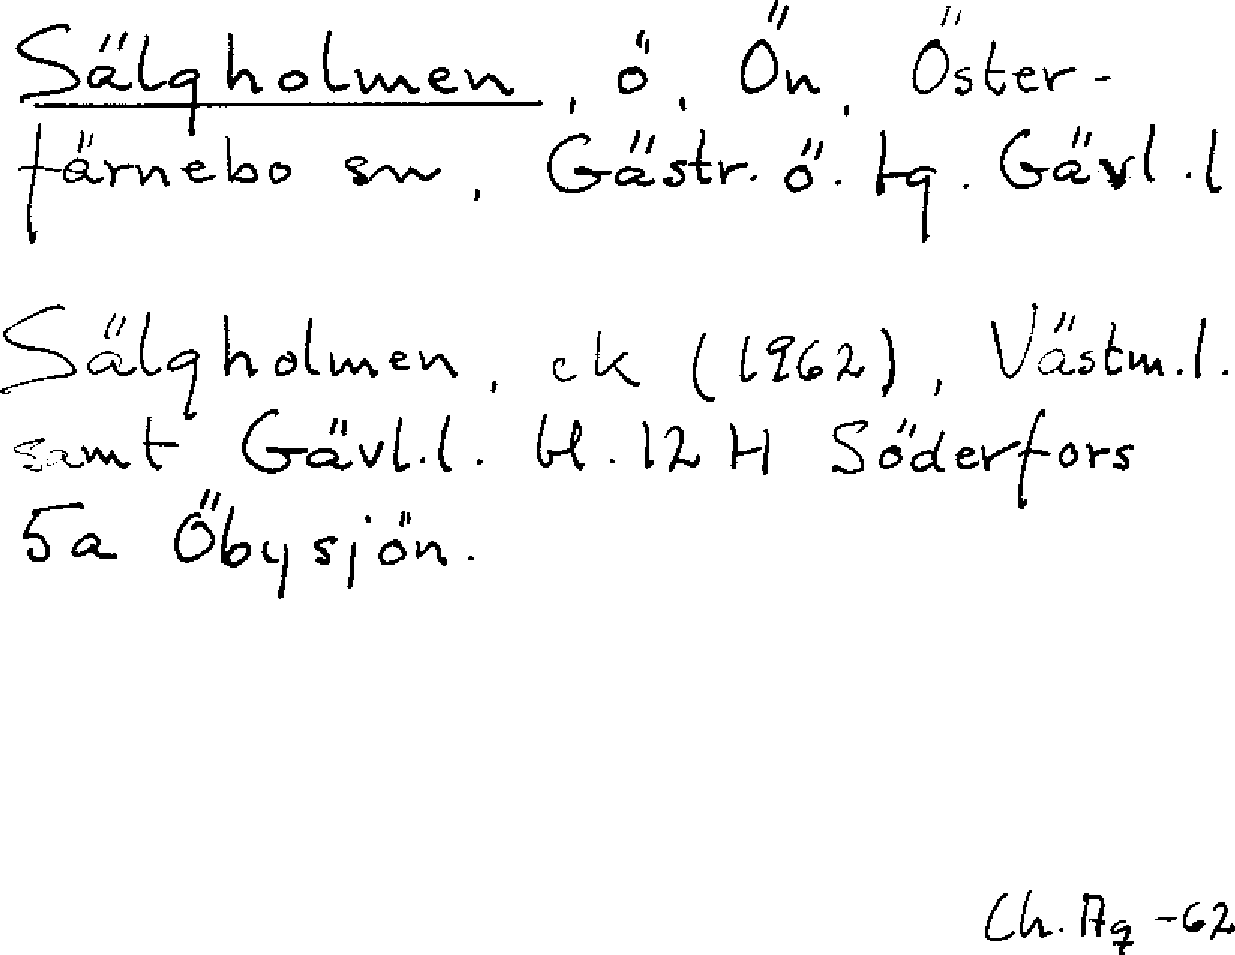 Sälgholmen, ö, Ön, Öster-
färnebo sn, Gästr. ö. tg. Gävl. l
Sälgholmen, ek (1962), Västm. l.
samt Gävl. l. bl. 12 H Söderfors
5a Öbysjön.
Ch. Ag -62